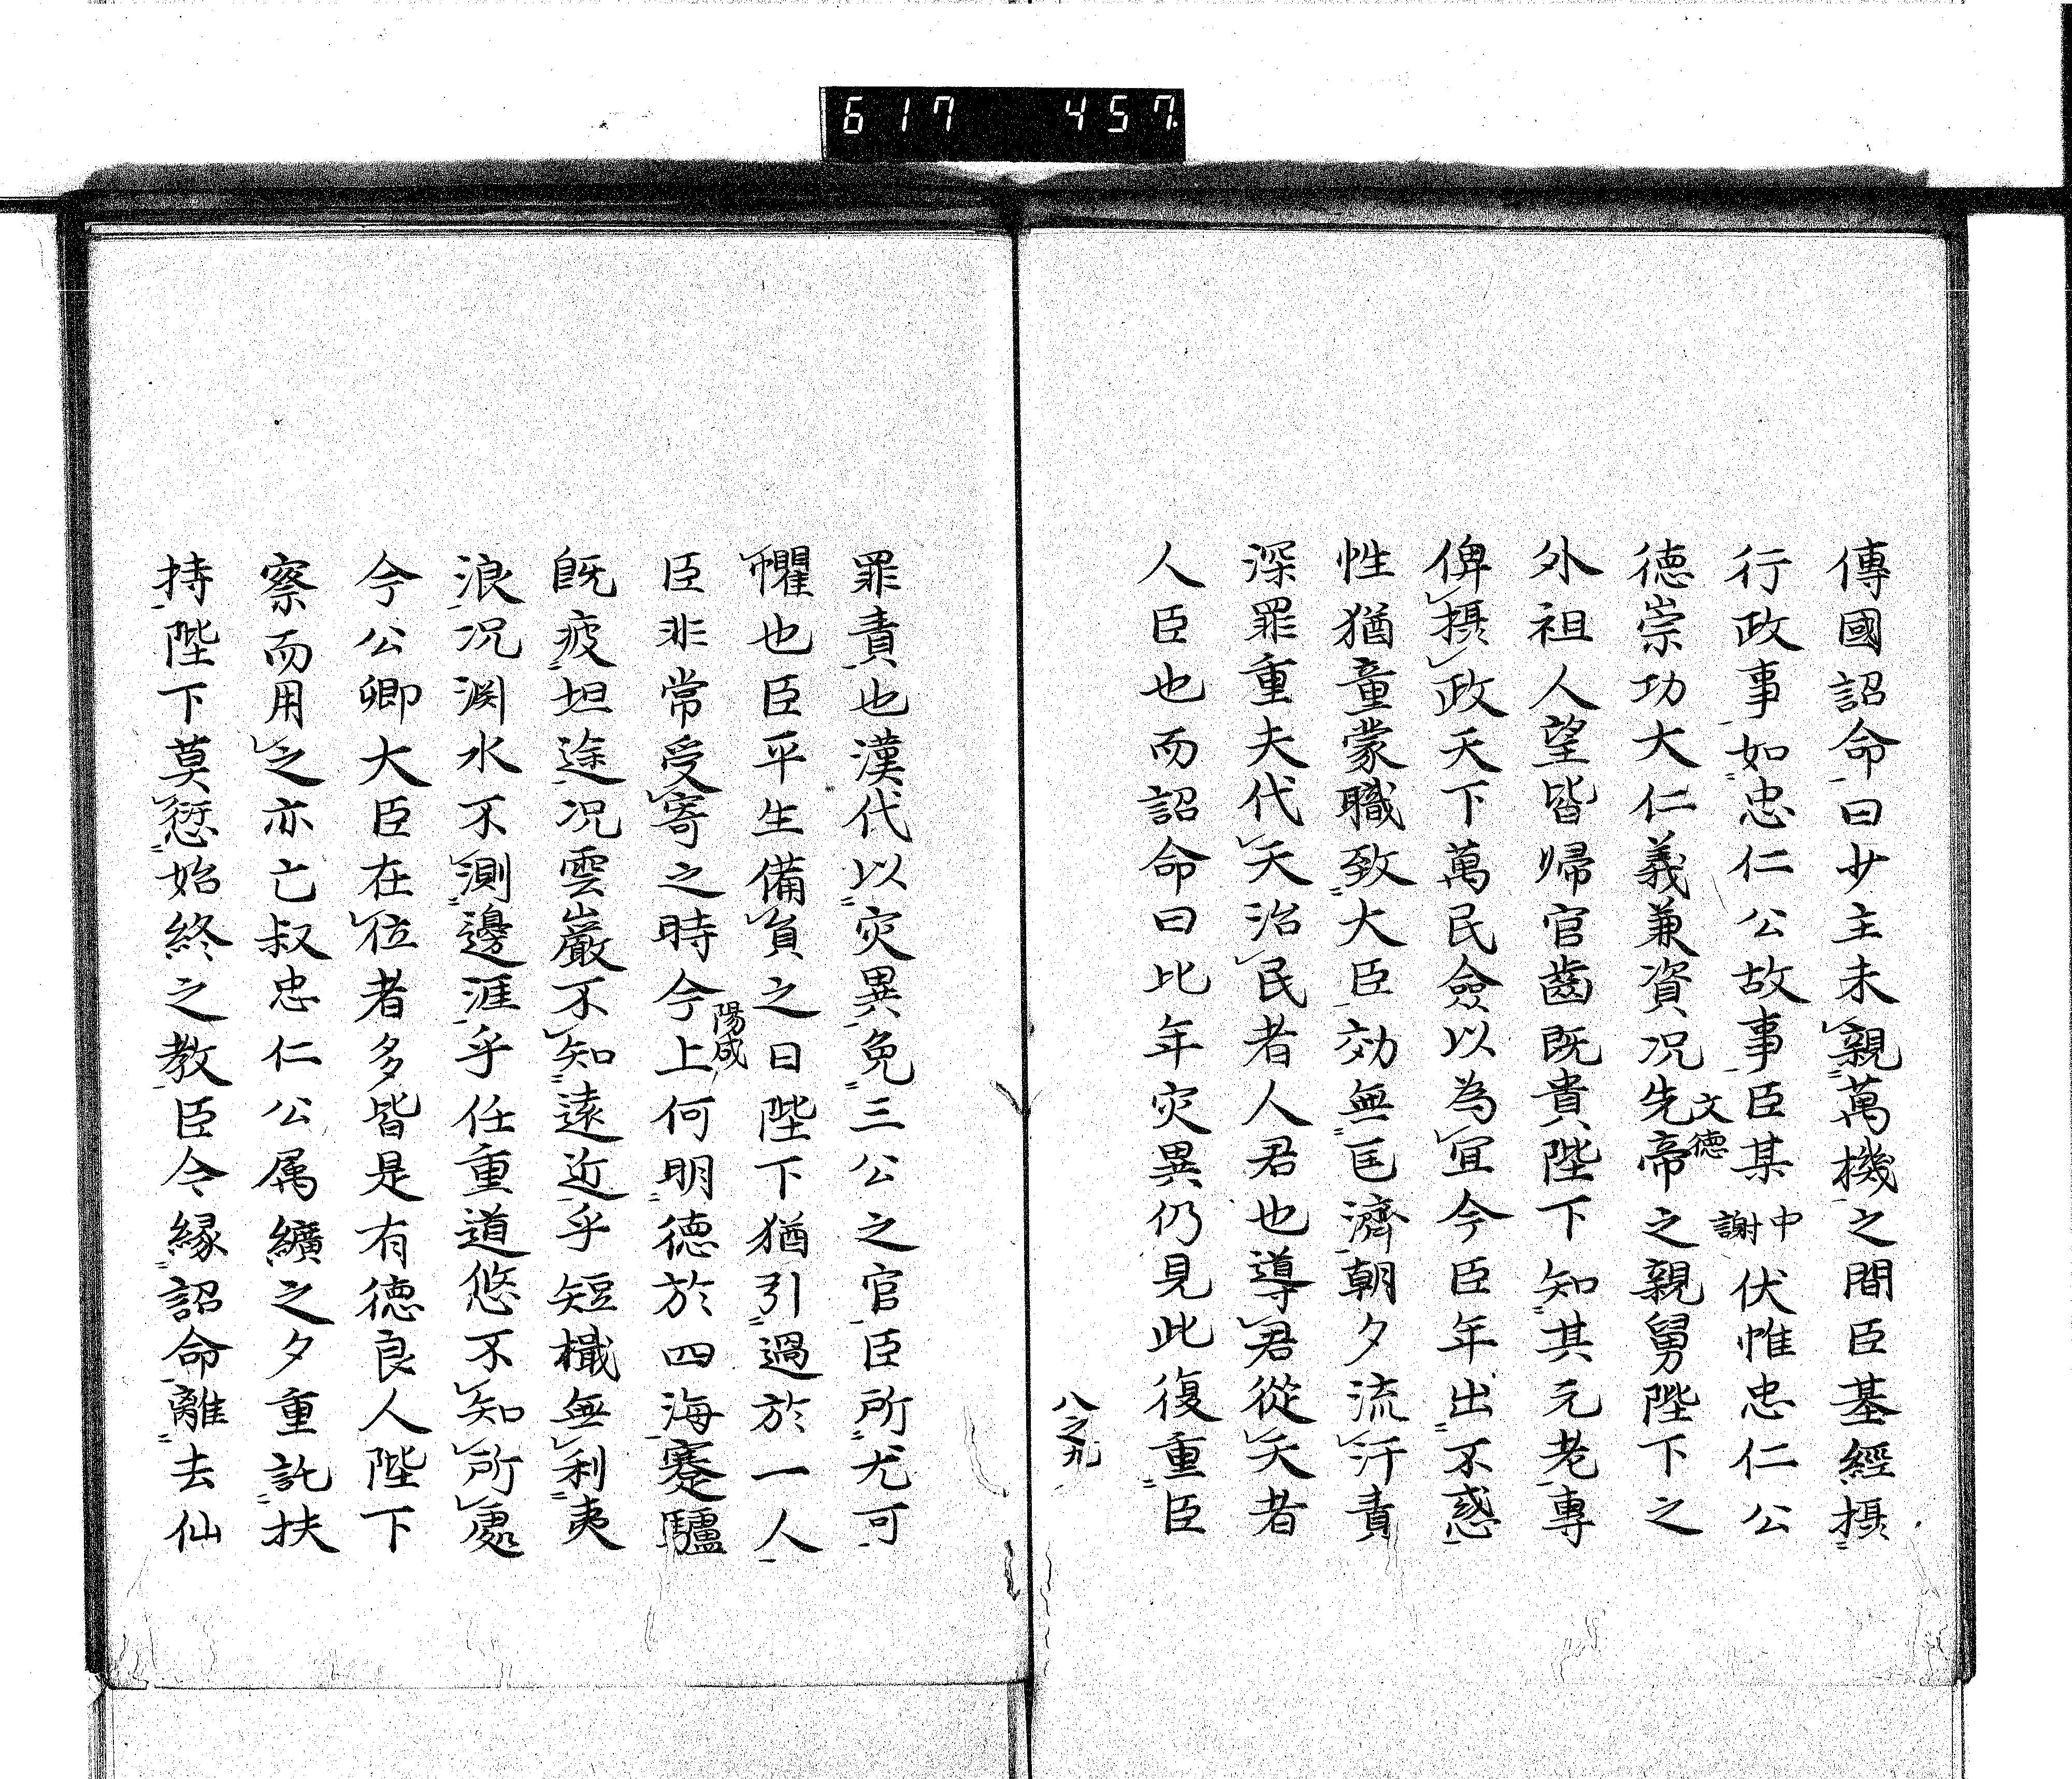 617 457
傳國詔命曰少主未親萬機之間臣基經摂
行政事如忠仁公故事臣某中謝伏惟忠仁公
徳崇功大仁義兼資况先帝之親舅陛下之
文徳
外祖人望皆帰官齒既貴陛下知其元老專
俾摂政天下萬民僉以為宜今臣年出不惑
性猶童蒙職致大臣効無匡濟朝夕流汗責
深罪重夫代天治民者人君也導君從天者
人臣也而詔命曰比年灾異仍見此復重臣
八之九
罪責也漢代以灾異免三公之官臣所尤可
懼也臣平生備負之日陛下猶引過於一人
臣非常受寄之時今上何明徳於四海蹇驢
陽成
既疲坦途况雲巖不知遠近乎短檝無利夷
浪况渕水不測邊涯乎任重道悠不知所處
今公卿大臣在位者多皆是有徳良人陛下
察而用之亦亡叔忠仁公属纊之夕重託扶
持陛下莫愆始終之教臣今縁詔命離去仙